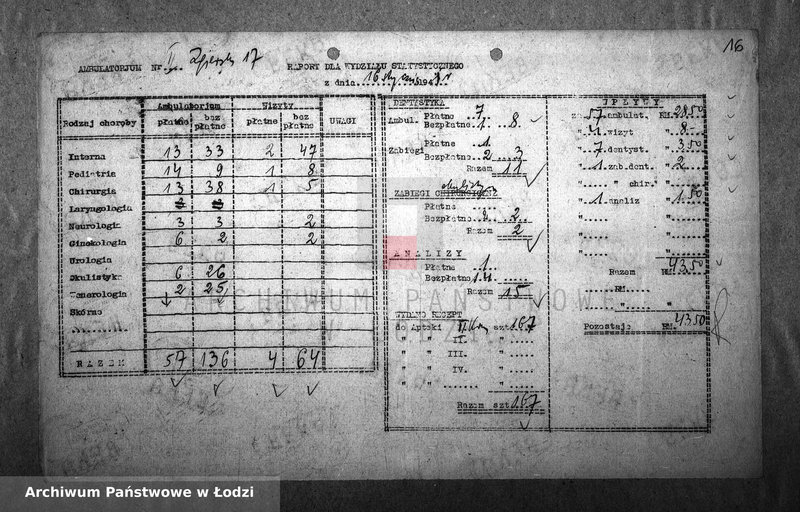 16
AMBULATORJUM Nr. II. Zgierska 17
RAPORT DLA WYDZIAŁU STATYSTYCZNEGO
z dnia 16 194
Rodzaj choroby Ambulatorjum Wizyty UWAGI
płatne bez płatne płatne bez płatne
Interna 13 33 2 47
Pediatria 14 9 1 8
Chirurgia 13 38 1 5
Laryngologia
Neurologia 3 3 2
Ginekologia 6 2 2
Urologia
Okulistyka 6 26
Wenerologia 2 25
Skórne
RAZEM 57 136 4 64
DENTYSTYKA
Ambul. Płatne 7
Bezpłatne 1 8
Zabiegi Płatne 1
Bezpłatne 2 3
Razem 11
ZABIEGI CHIRURGICZNE
Płatne
Bezpłatne 2 2
Razem 2
ANALIZY
Płatne 1
Bezpłatne 14
Razem 15
WYDANO RECEPT
do Apteki szt 167
" " II. " "
" " III. " "
" " IV. " "
" " " "
Razem szt 167
WPŁYWY
za 57 ambulat. RM. 28.50
" 4 wizyt " 8.-
" 7 dentyst. " 3.50
" 1 zab.dent. " 2.-
" " chir. "
" 1 analiz " 1.50
" "
" "
Razem RM. 43.50
RM.
" "
Pozostaje RM. 43.50
ARCHIWUM PAŃSTWOWE
Archiwum Państwowe w Łodzi